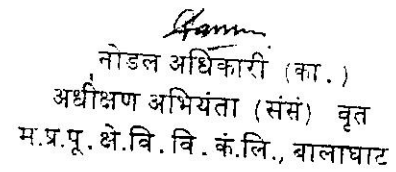 नोडल अधिकारी (का.)
अधीक्षण अभियंता (संसं) वृत
म.प्र.पू.क्षे.वि.वि.कं.लि., बालाघाट